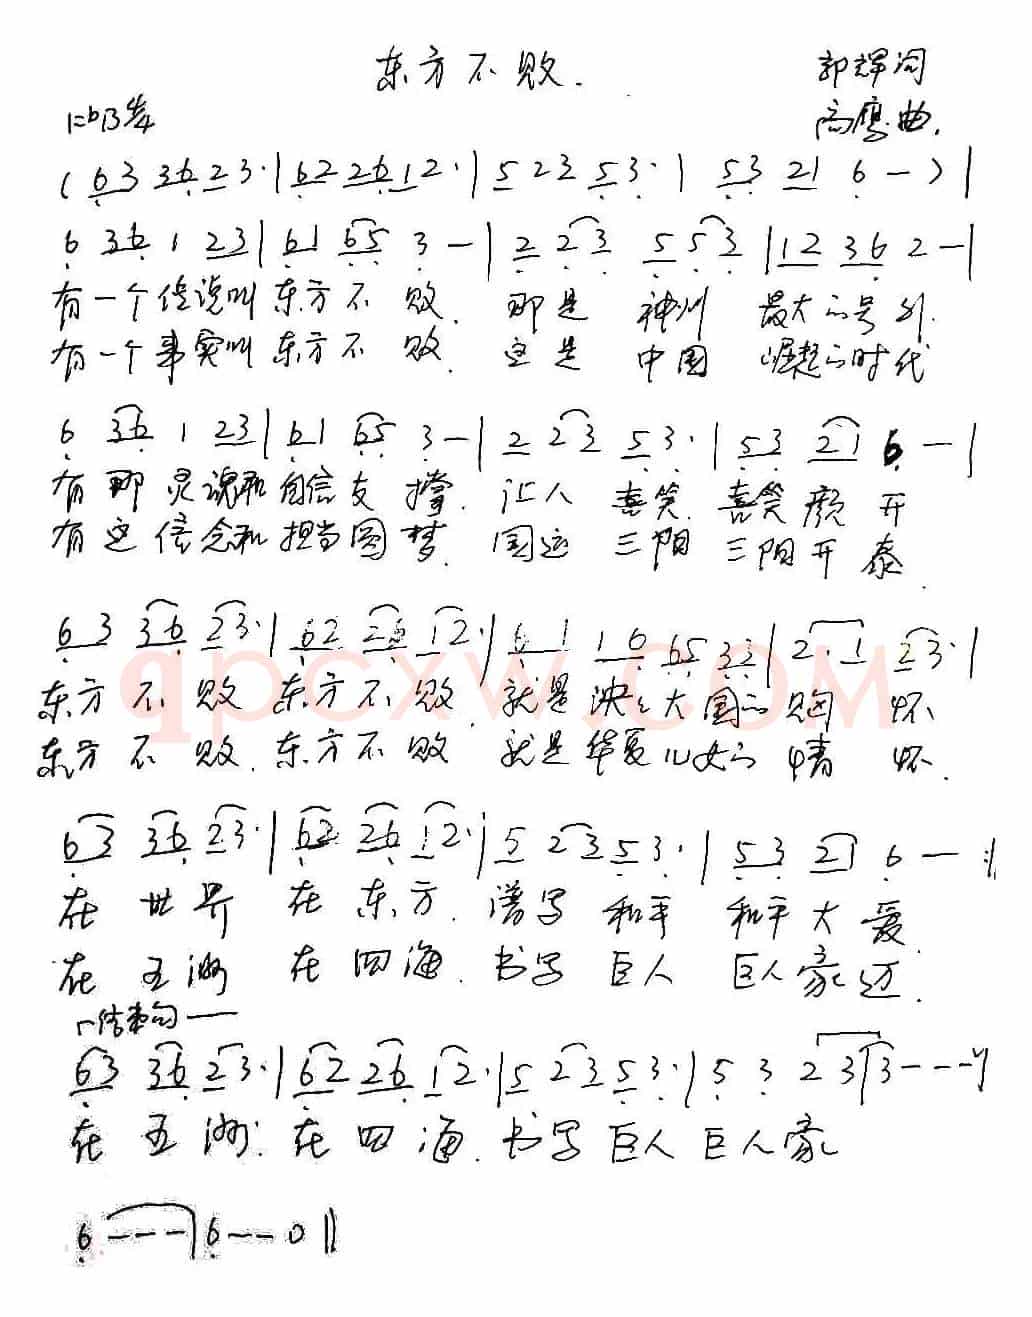 东方不败.
郭辉词
1=♭B 4/4
高鹰曲.
( 63 36 23· | 62 26 12· | 5 23 53· | 53 21 6 — ) |
6 36 1 23 | 61 65 3 — | 2 23 5 53 | 12 36 2 — |
有一个传说叫 东方不 败. 那是 神州 最大的号列.
有一个事实叫 东方不 败. 这是 中国 崛起的时代
6 36 1 23 | 61 65 3 — | 2 23 53· | 53 21 6 — |
有 那 灵魂和 自信支 撑. 让人 喜笑 喜笑颜 开
有 这 信念和 担当圆 梦. 国运 三阳 三阳开 泰.
63 36 23· | 62 26 12· | 61 16 65 33 | 2·1 23· |
东方 不 败 东方不 败. 就是 泱泱大国的 胸 怀
东方 不 败. 东方不 败 就是华夏儿女的 情 怀.
63 36 23· | 62 26 12· | 5 23 53· | 53 21 6 — :||
在 世 界 在 东 方. 谱写 和平 和平 大 爱
在 五 洲 在 四 海. 书写 巨人 巨人豪迈.
结束句 —
63 36 23· | 62 26 12· | 5 23 53· | 5 3 2 3 | 3 - - - |
在 五 洲. 在 四 海. 书写 巨人 巨人豪
6 - - - | 6 - - 0 ||
qpcxw.COM